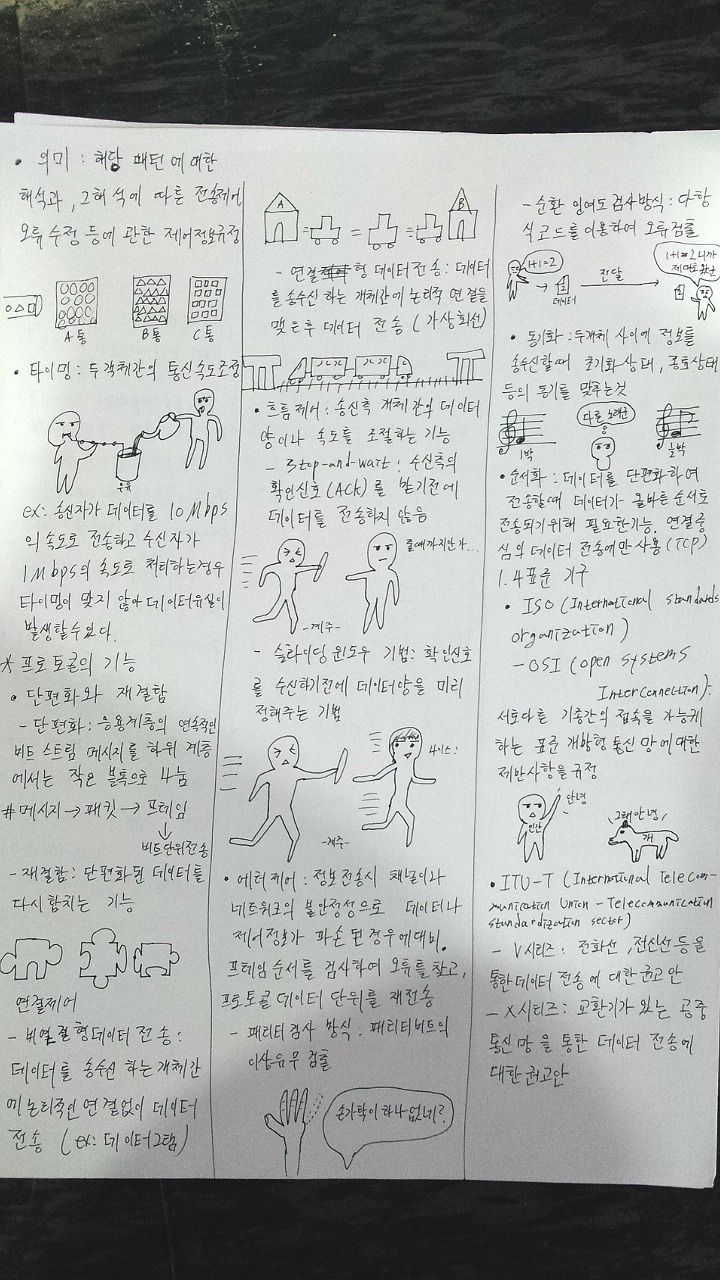 • 의미 : 해당 패턴에 대한
해석과, 그 해석에 따른 전송제어,
오류 수정 등에 관한 제어정보규정
A통 B통 C통
• 타이밍 : 두 객체간의 통신속도조정
우유
ex: 송신자가 데이터를 10Mbps
의 속도로 전송하고 수신자가
1Mbps의 속도로 처리하는경우
타이밍이 맞지 않아 데이터유실이
발생할수있다.
* 프로토콜의 기능
• 단편화와 재결합
- 단편화: 응용계층의 연속적인
비트 스트림 메시지를 하위 계층
에서는 작은 블록으로 나눔
# 메시지 → 패킷 → 프레임
↓
비트단위전송
- 재결합: 단편화된 데이터를
다시 합치는 기능
연결제어
- 비연결형데이터 전송:
데이터를 송수신 하는 개체간
에 논리적인 연결없이 데이터
전송 (ex: 데이터그램)
A B
- 연결형 데이터전송 : 데이터
를 송수신 하는 개체간에 논리적 연결을
맺은후 데이터 전송 (가상회선)
• 흐름제어 : 송신측 개체 간의 데이터
양이나 속도를 조절하는 기능
- Stop-and-wait : 수신측의
확인신호(ACK)를 받기전에
데이터를 전송하지 않음
올때까지안가...
-계주-
- 슬라이딩 윈도우 기법: 확인신호
를 수신하기전에 데이터양을 미리
정해주는 기법
-계주-
• 에러제어 : 정보전송시 채널이나
네트워크의 불안정성으로 데이터나
제어정보가 파손 된 경우에대비.
프레임 순서를 검사하여 오류를 찾고,
프로토콜 데이터 단위를 재전송
- 패리티 검사 방식. 패리티비트의
이상유무 검출
손가락이 하나 없네?
- 순환 잉여도 검사방식 : 다항
식 코드를 이용하여 오류검출
1+1=2
데이터
전달
1+1=2니까
제대로왔군
• 동기화 : 두개체 사이에 정보를
송수신할때 초기화상태, 종료상태
등의 동기를 맞추는것
1박
다른 노래군
• 순서화 : 데이터를 단편화하여
전송할때 데이터가 올바른 순서로
전송되기위해 필요한기능. 연결중
심의 데이터 전송에만 사용(TCP)
1.4 표준 기구
• ISO (International standards
organization)
- OSI (open systems
Interconnection):
서로다른 기종간의 접속을 가능케
하는 표준 개방형 통신 망에 대한
제반사항을 규정
안녕
인간
그래 안녕
개
• ITU-T (International Telecom-
munication Union - Telecommunication
standardization sector)
- V시리즈 : 전화선, 전신선 등을
통한데이터 전송에 대한 권고안
- X시리즈 : 교환기가 있는 공중
통신망을 통한 데이터 전송에
대한 권고안